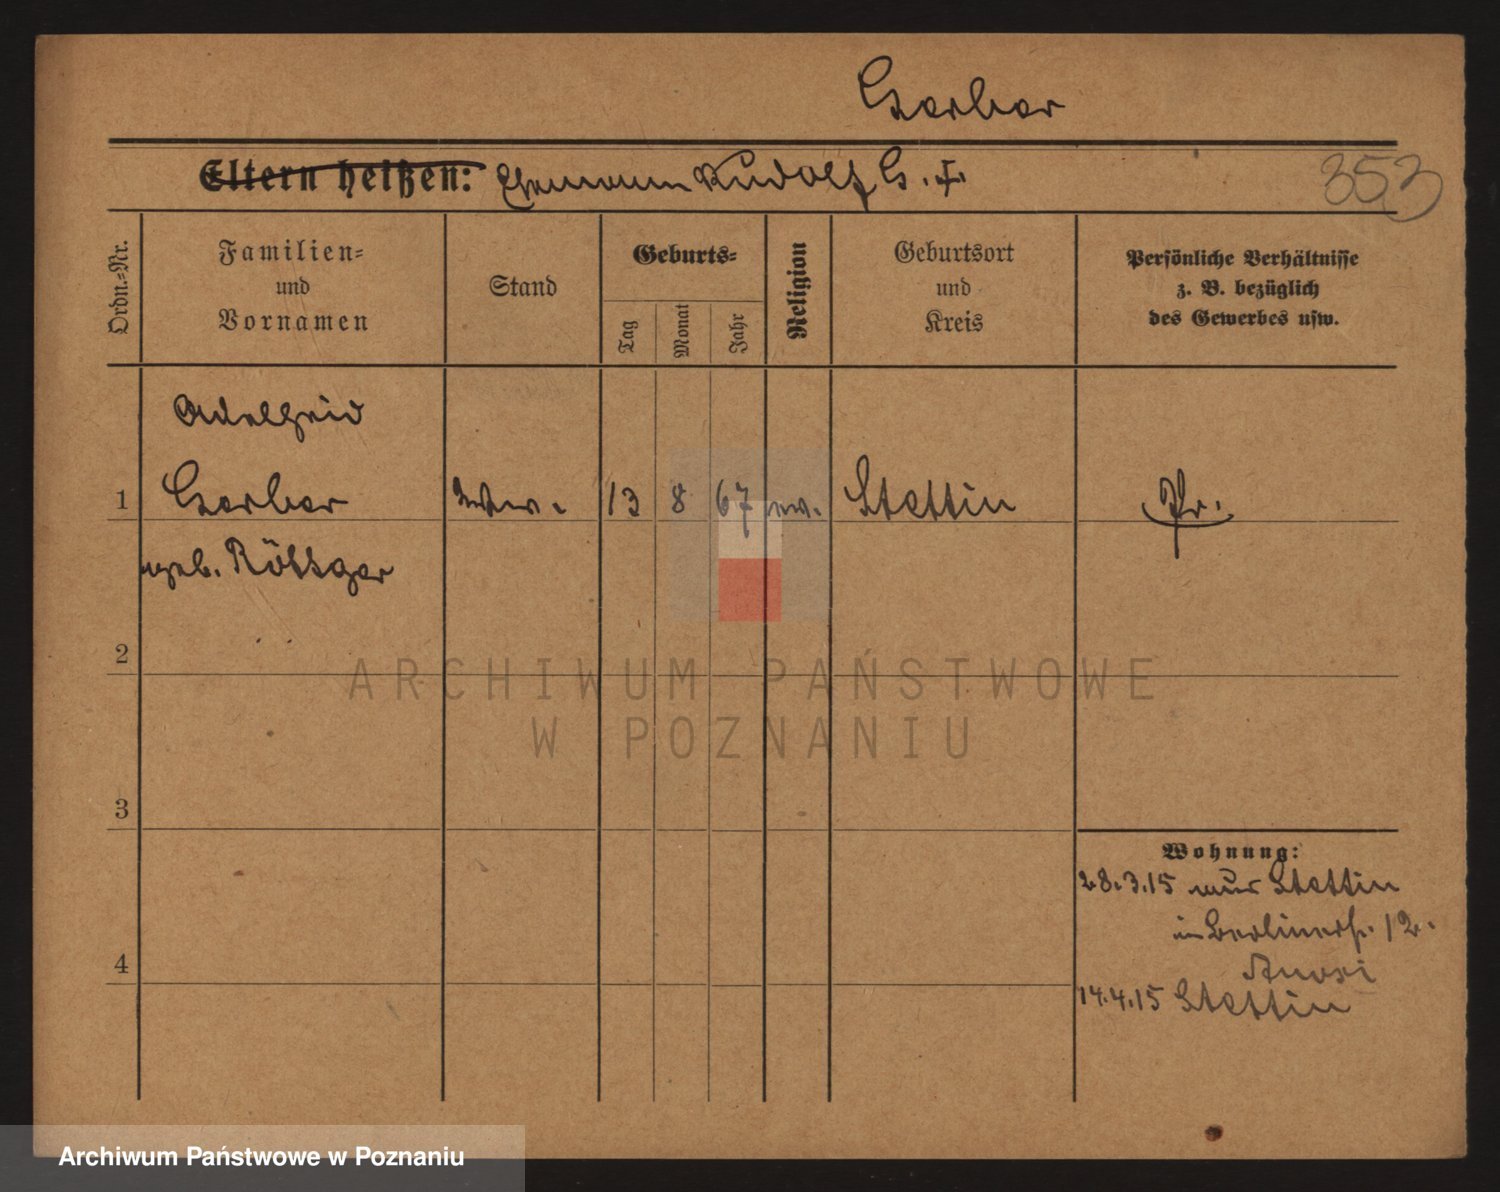 Gerber
Eltern heißen: Ehemann Rudolf G. †.
353
Ordn.=Nr.
Familien=
und
Vornamen
Stand
Geburts=
Tag
Monat
Jahr
Religion
Geburtsort
und
Kreis
Persönliche Verhältnisse
z. B. bezüglich
des Gewerbes usw.
Adelheid
1 Gerber Wwe. 13 8 67 ev. Stettin Pr.
geb. Röttger
2
3
4
Wohnung:
28.3.15 aus Stettin
in Berlinerstr. 12.
14.4.15 Stettin
ARCHIWUM PAŃSTWOWE
W POZNANIU
Archiwum Państwowe w Poznaniu